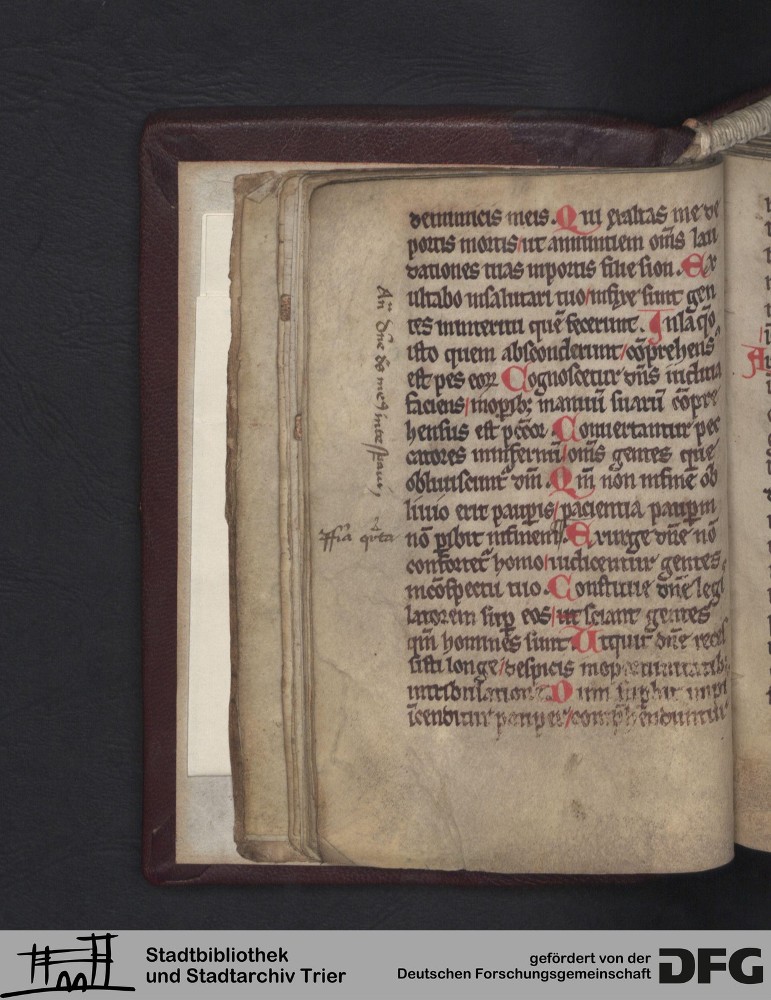 de inimicis meis. Qui exaltas me de
portis mortis/ut annuntiem om̅s lau
dationes tuas inportis filie sion. Ex
ultabo insalutari tuo/infixe sunt gen
tes ininteritu que̅ fecerunt. Inlaq̅o
isto quem absconderunt/co̅prehens9
est pes eoꝝ Cognoscetur dn̅s iudicia
faciens/inopib; manuu̅ suaru̅ co̅pre
hensus est pc̅cor Conuertantur pec
catores ininfernu̅/om̅s gentes que
obliuiscunt᷑ dm̅. Qm̅ non infine̅ ob
liuio erit paupis/pacientia paupm
no̅ ꝑibit infinem. Exurge dn̅e no̅
confortet᷑ homo/iudicentur gentes
inco̅spectu tuo. Constitue dn̅e legis
latorem sup̱ eos/ut sciant gentes
qm̅ homines sunt Utquit dn̅e reces
sisti longe/despicis inoportunitatib;
intribulatione Dum supbit impi
i̅cenditur pauper/comp̱henduntur
An̅ Dn̅e ds̅ me9 inte speraui
Stadtbibliothek
und Stadtarchiv Trier
gefördert von der
Deutschen Forschungsgemeinschaft
DFG